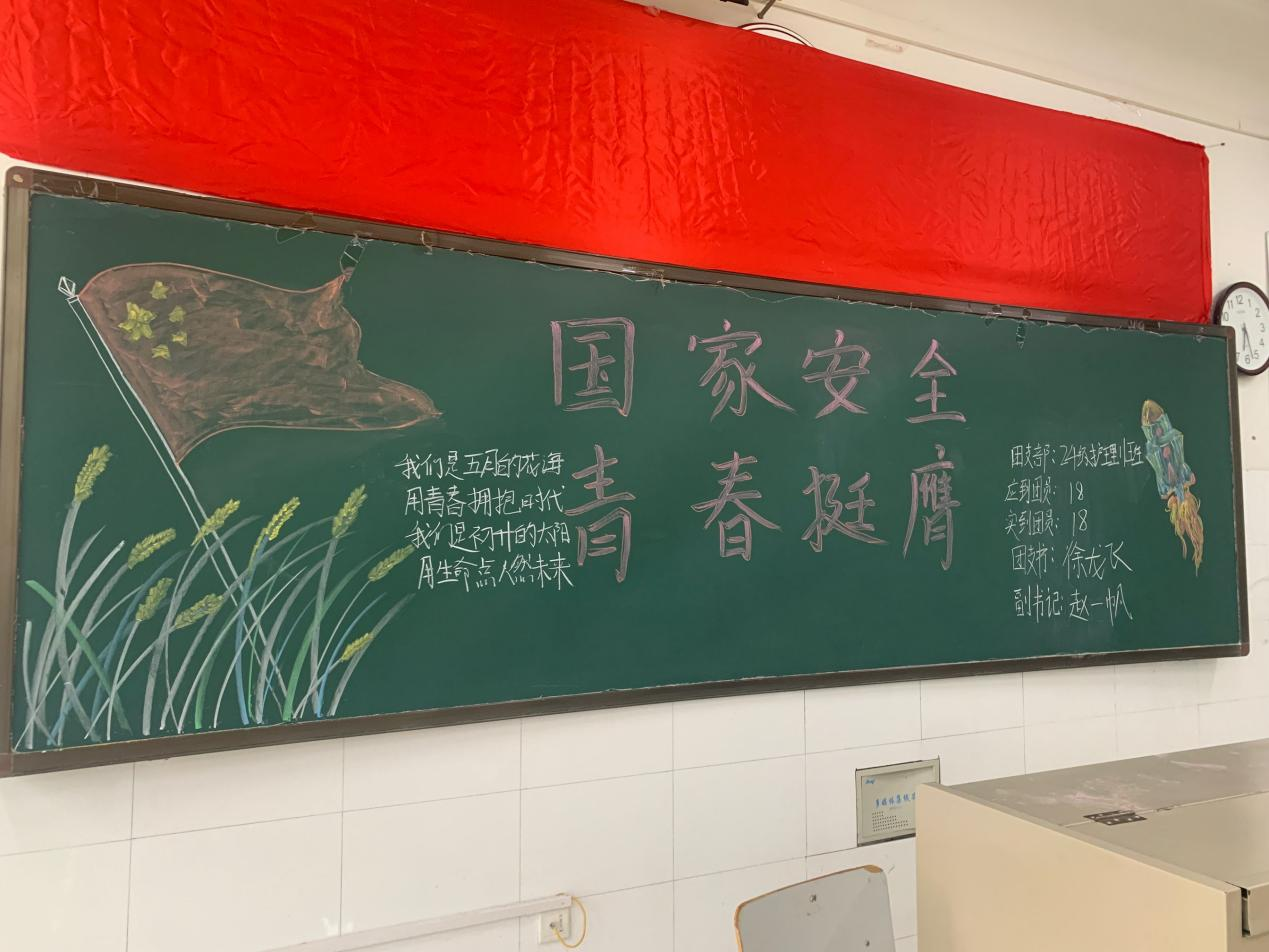 国家安全
青春挺膺
我们是五月的花海
用青春拥抱时代
我们是初升的太阳
用生命点燃未来
团支部：24级护理11班
应到团员：18
实到团员：18
团支书：徐龙飞
副书记：赵一帆
12
1
2
3
4
5
6
7
10
11
多媒体集线